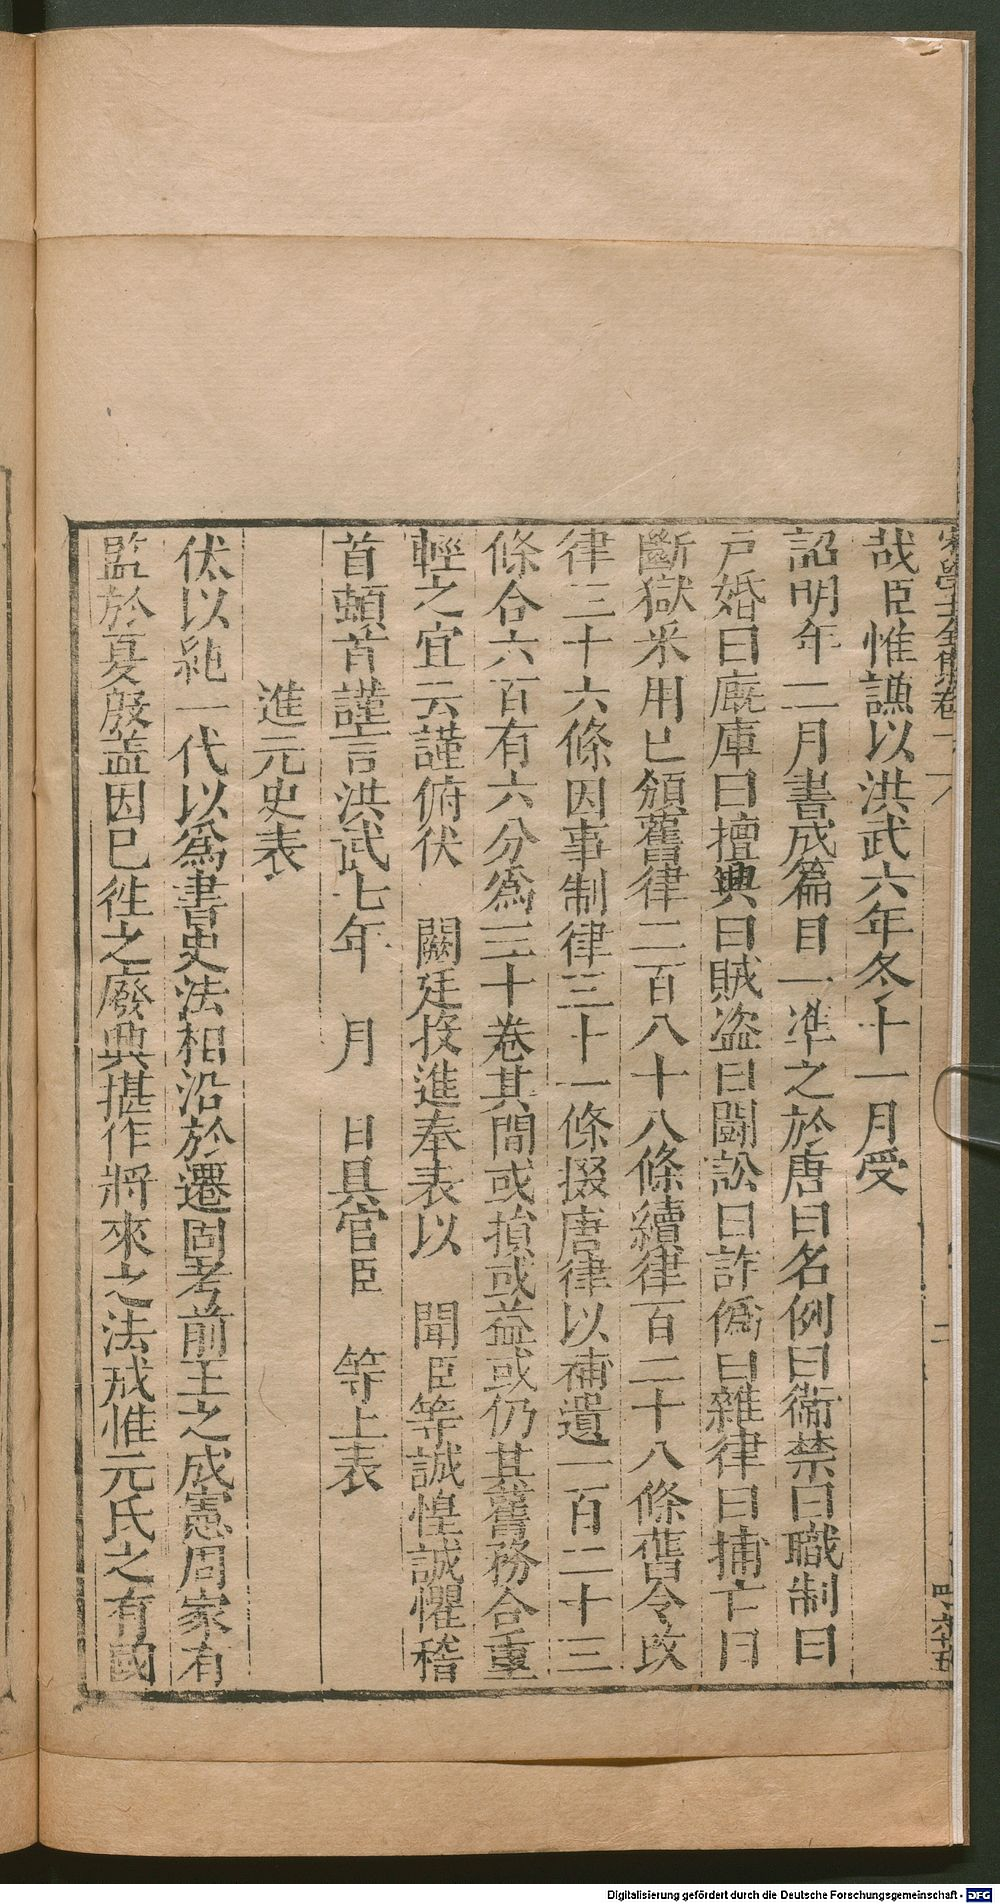 哉臣惟謙以洪武六年冬十一月受
詔明年二月書成篇目一準之於唐曰名例曰衞禁曰職制曰
戸婚曰廐庫曰擅興曰賊盗曰鬬訟曰詐僞曰雜律曰捕亡曰
斷獄釆用巳頒舊律二百八十八條續律百二十八條舊令攺
律三十六條因事制律三十一條掇唐律以補遺一百二十三
條合六百有六分爲三十卷其間或損或益或仍其舊務合重
輕之宜云謹俯伏 闕廷投進奉表以 聞臣等誠惶誠懼稽
首頓首謹言洪武七年 月 日具官臣 等上表
進元史表
伏以紀一代以爲書史法相沿於遷固考前王之成憲周家有
監於夏殷盖因巳徃之廢典堪作將來之法戒惟元氏之有國
Digitalisierung gefördert durch die Deutsche Forschungsgemeinschaft - DFG